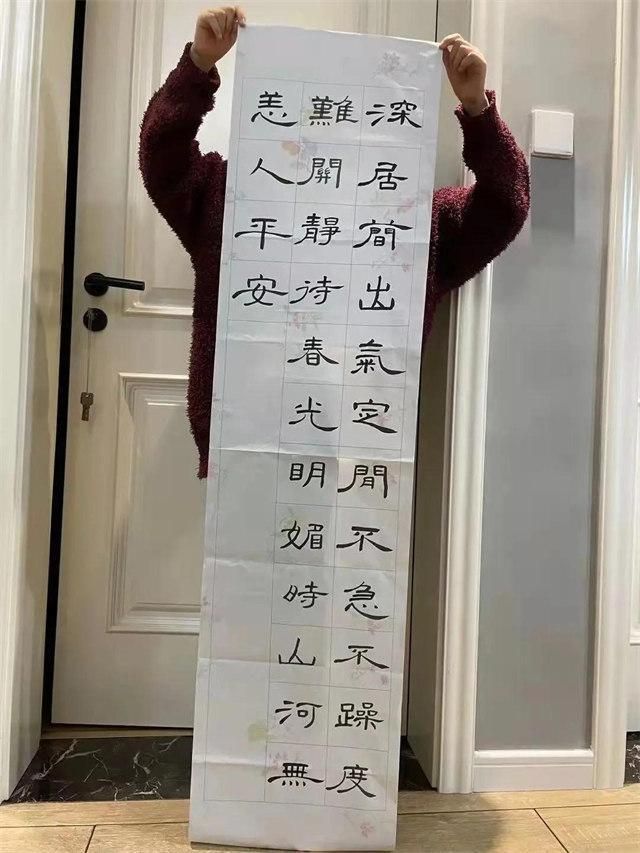 深居簡出氣定閒不急不躁度
難關靜待春光明媚時山河無
恙人平安